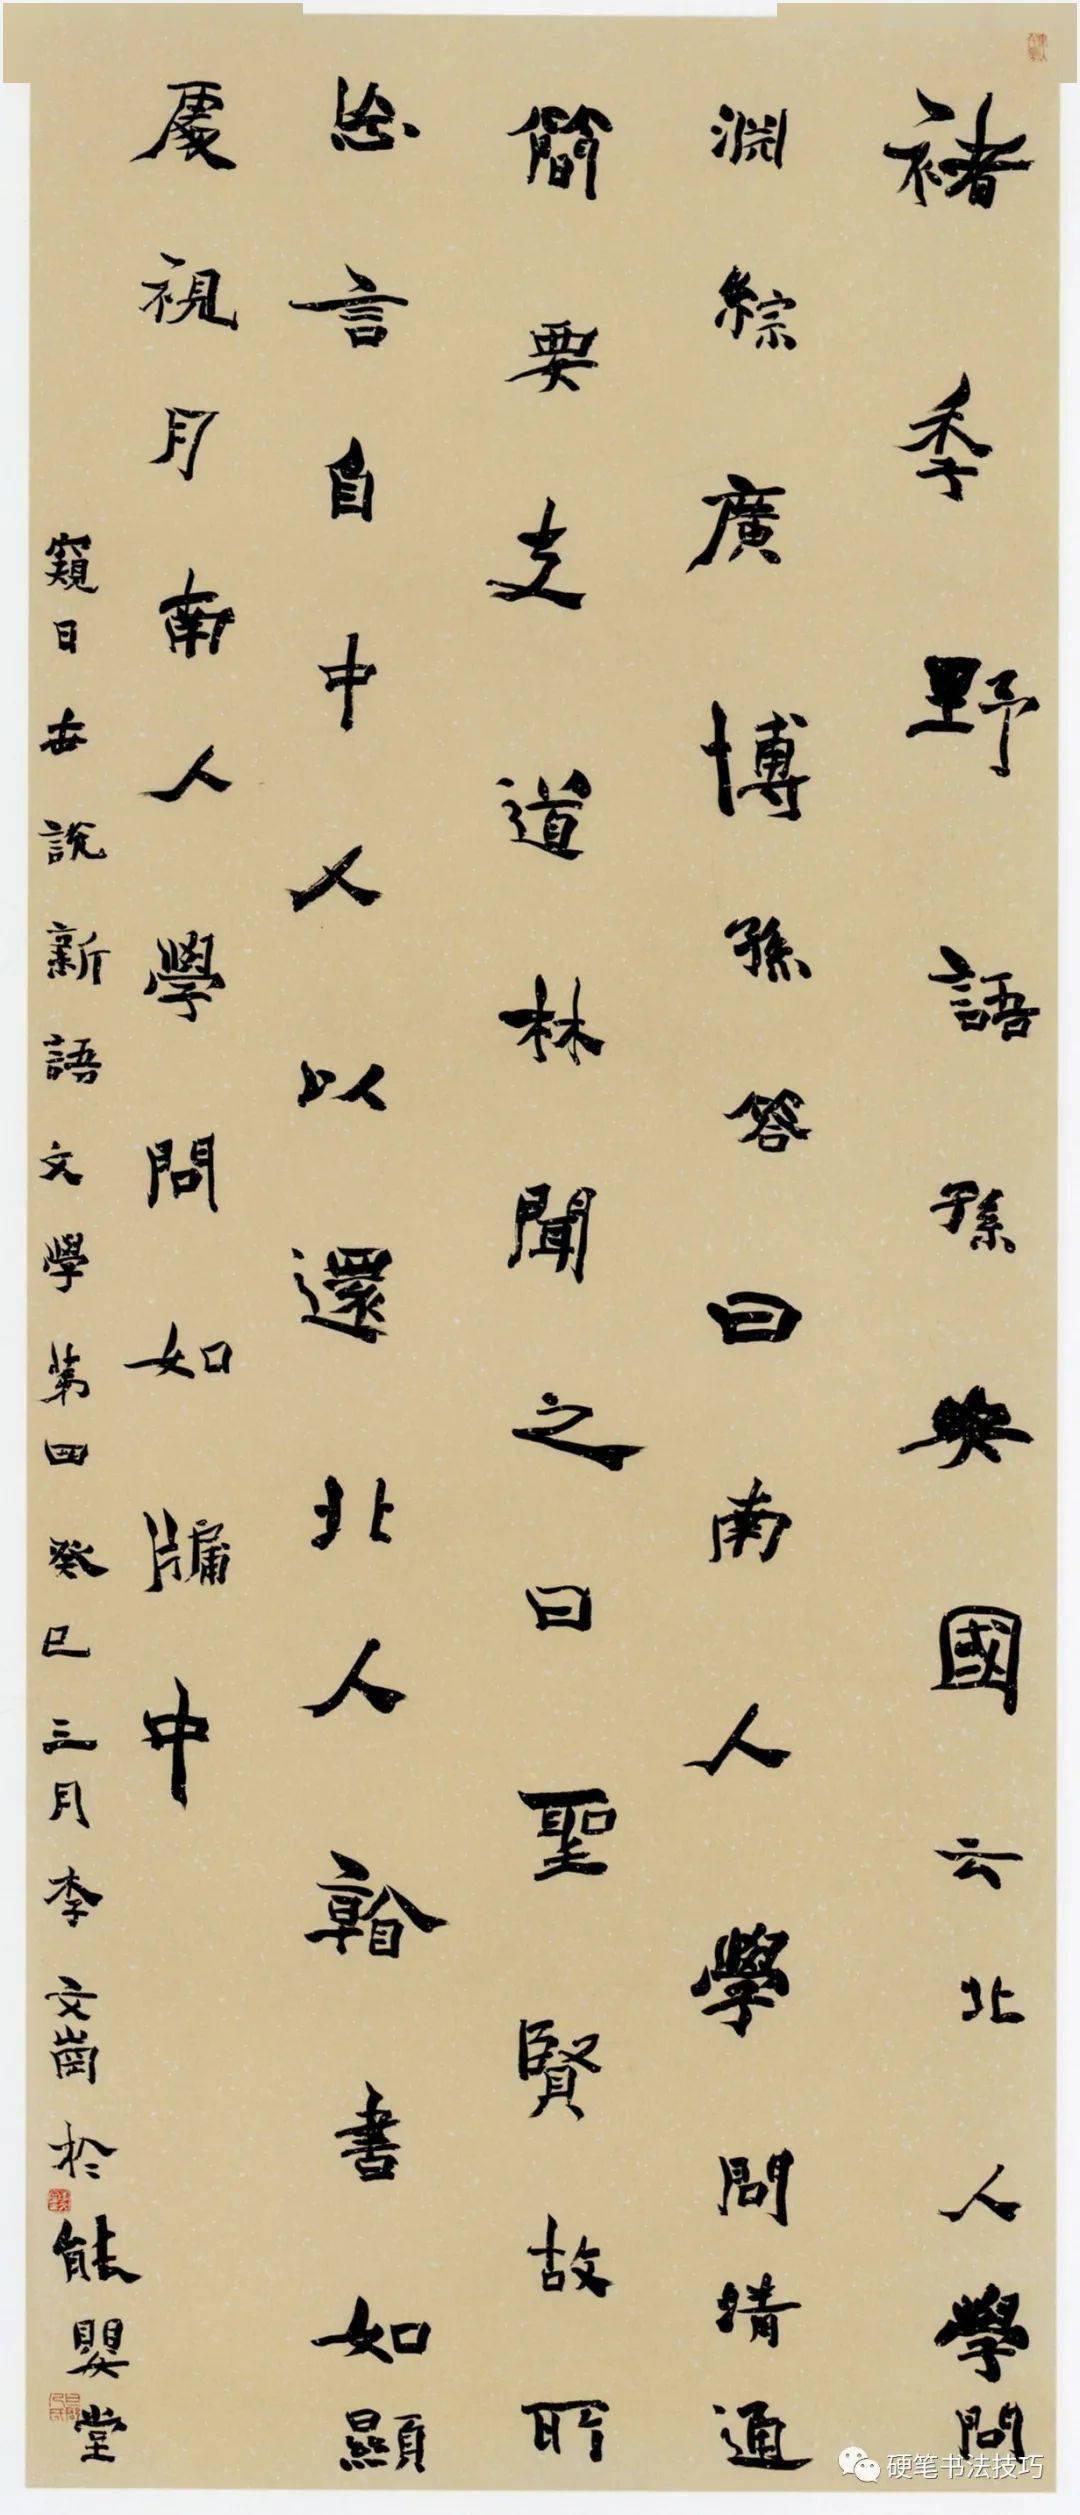 褚季野語孫安國云北人學問
淵綜廣博孫答曰南人學問清通
簡要支道林聞之曰聖賢故所
忘言自中人以還北人看書如顯
處視月南人學問如牖中
窺日世說新語文學第四癸巳三月李文崗於能嬰堂
硬笔书法技巧